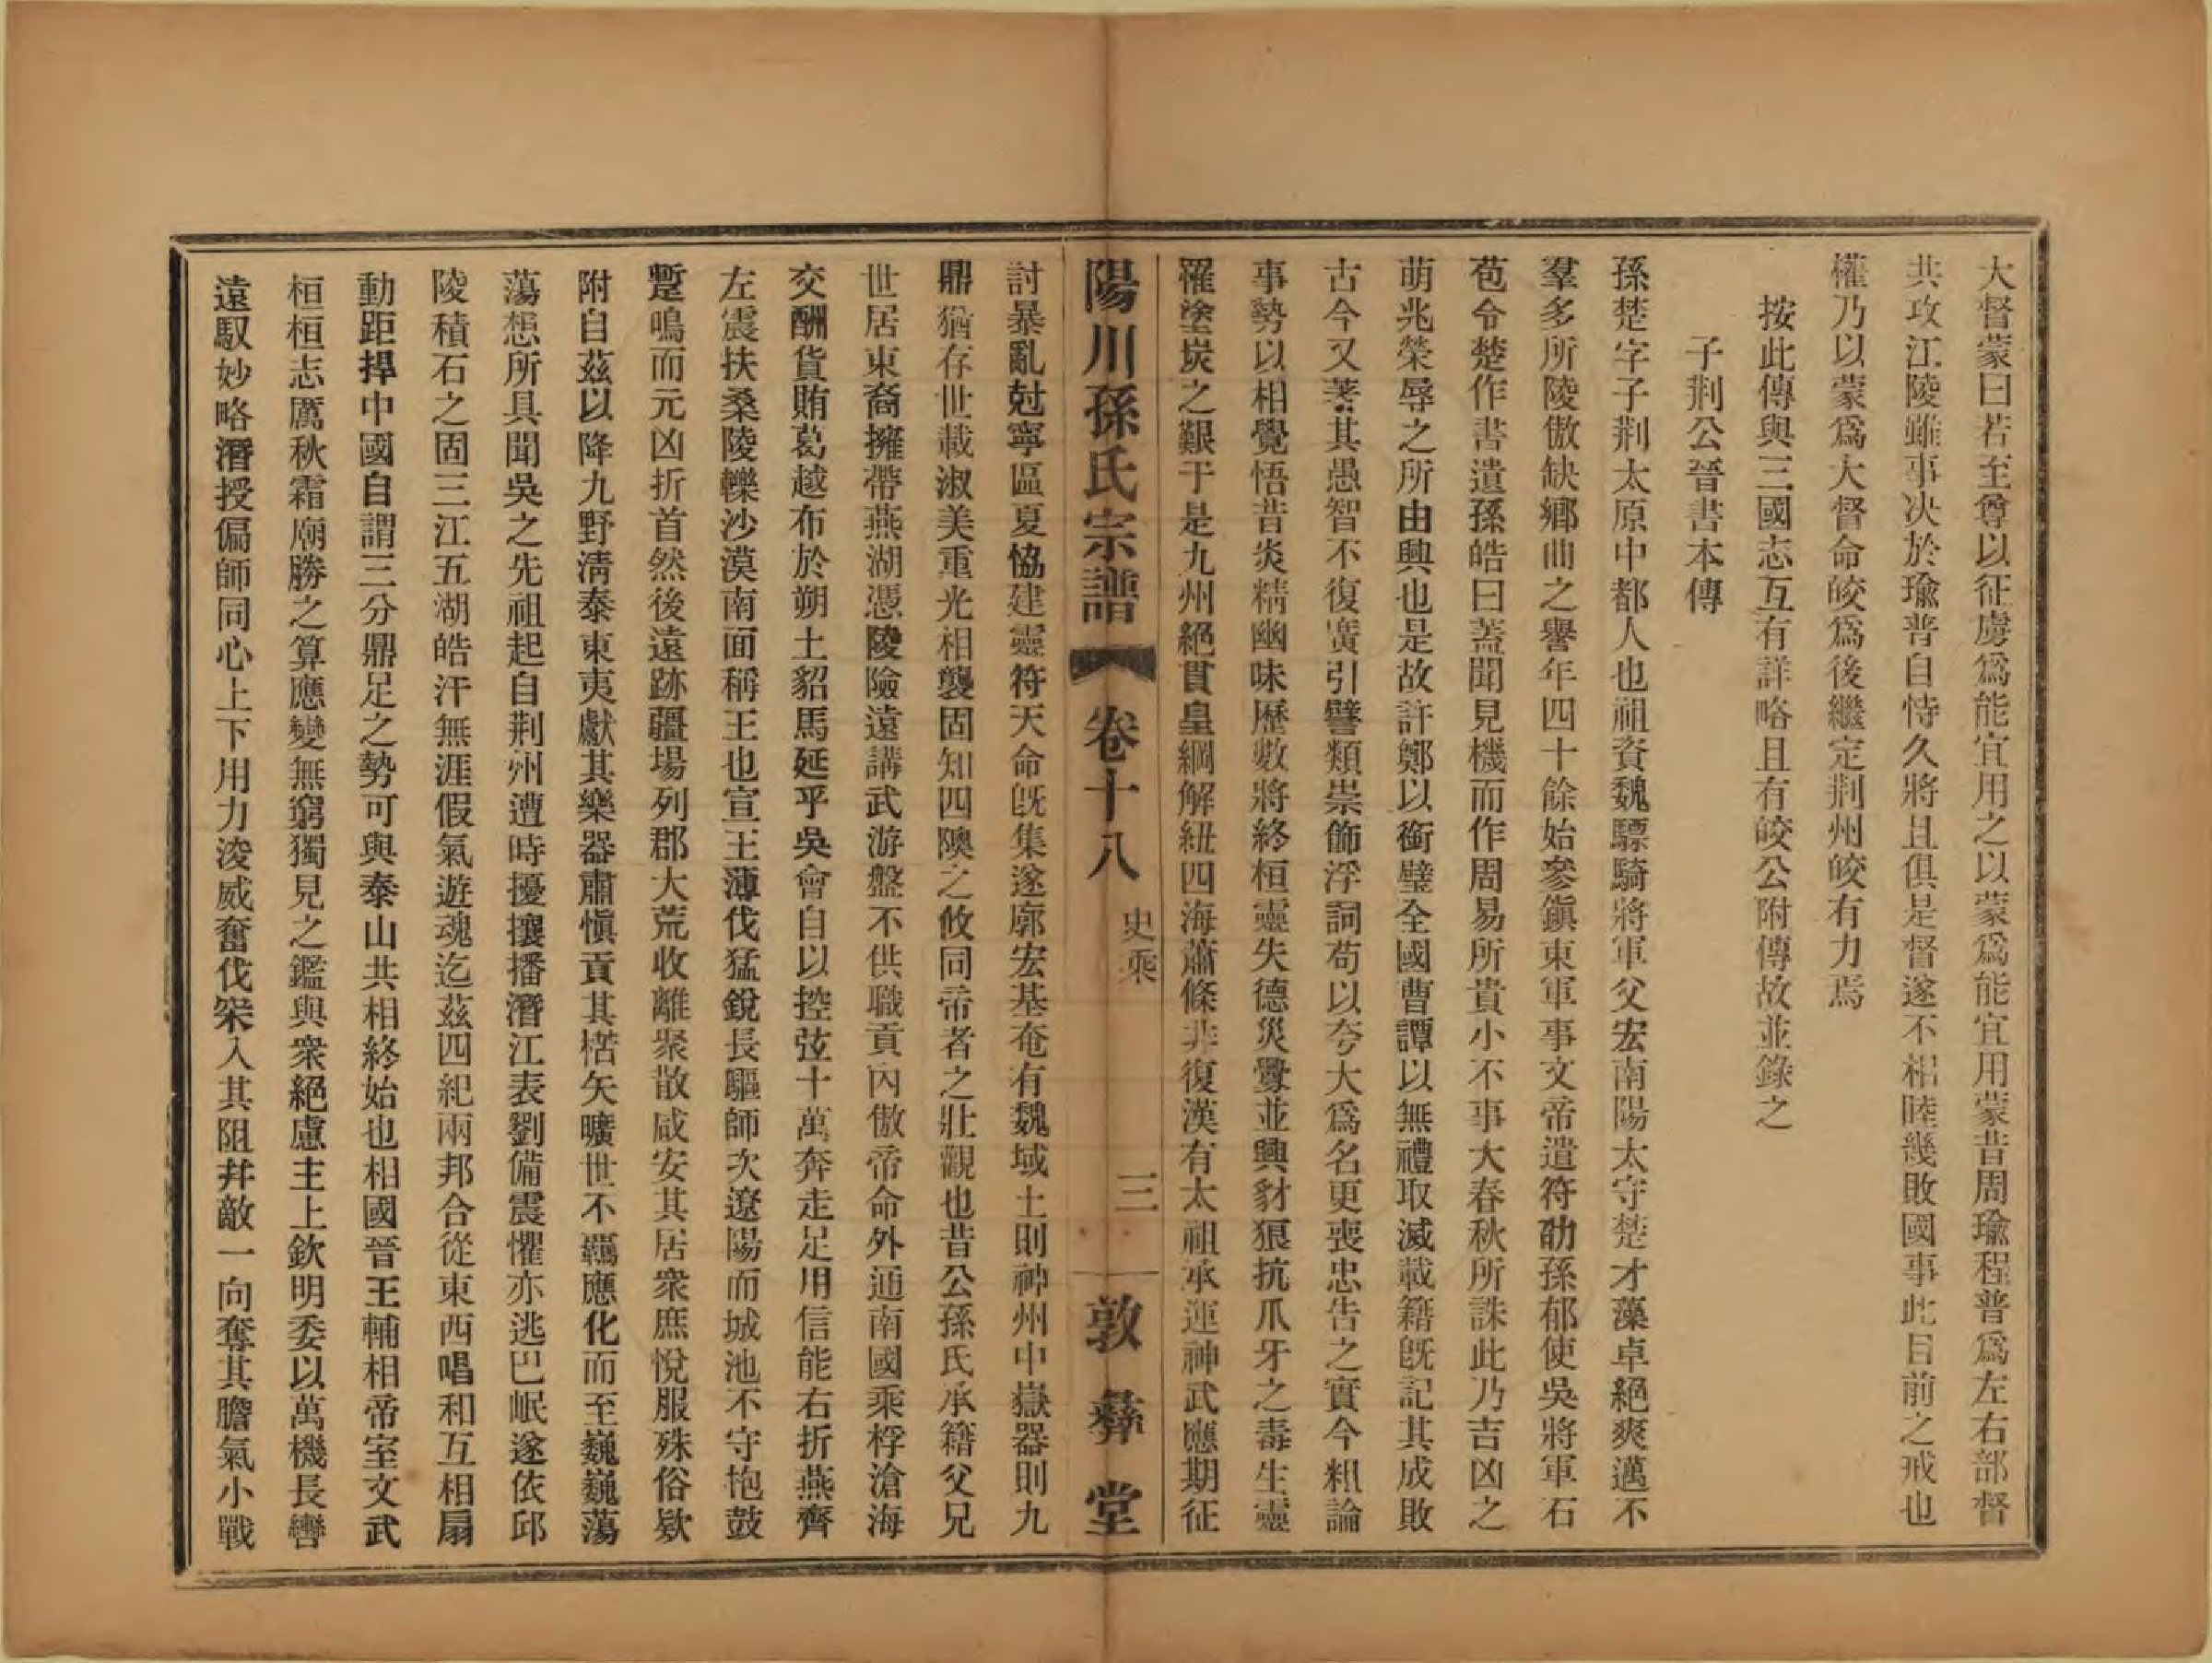 大督蒙曰若至尊以征虜爲能宜用之以蒙爲能宜用蒙昔周瑜程普爲左右部督
共攻江陵雖事决於瑜普自恃久將且俱是督遂不相睦幾敗國事此目前之戒也
權乃以蒙爲大督命皎爲後繼定荆州皎有力焉
按此傳與三國志互有詳略且有皎公附傳故並錄之
子荆公晉書本傳
孫楚字子荆太原中都人也祖資魏驃騎將軍父宏南陽太守楚才藻卓絕爽邁不
羣多所陵傲缺鄉曲之譽年四十餘始參鎭東軍事文帝遣符劭孫郁使吳將軍石
苞令楚作書遺孫皓曰蓋聞見機而作周易所貴小不事大春秋所誅此乃吉凶之
萌兆榮辱之所由興也是故許鄭以銜璧全國曹譚以無禮取滅載籍旣記其成敗
古今又著其愚智不復廣引譬類崇飾浮詞苟以夸大爲名更喪忠告之實今粗論
事勢以相覺悟昔炎精幽昧歷數將終桓靈失德災釁並興豺狼抗爪牙之毒生靈
罹塗炭之艱于是九州絕貫皇綱解紐四海蕭條非復漢有太祖承運神武應期征
陽川孫氏宗譜 卷十八 史乘 三 敦彝堂
討暴亂尅寧區夏恊建靈符天命旣集遂廓宏基奄有魏域土則神州中嶽器則九
鼎猶存世載淑美重光相襲固知四隩之攸同帝者之壯觀也昔公孫氏承籍父兄
世居東裔擁帶燕湖憑陵險遠講武游盤不供職貢內傲帝命外通南國乘桴滄海
交酬貨賄葛越布於朔土貂馬延乎吳會自以控弦十萬奔走足用信能右折燕齊
左震扶桑陵轢沙漠南面稱王也宣王薄伐猛銳長驅師次遼陽而城池不守枹鼓
蹔鳴而元凶折首然後遠跡疆場列郡大荒收離聚散咸安其居衆庶悅服殊俗欵
附自茲以降九野淸泰東夷獻其樂器肅愼貢其楛矢曠世不羈應化而至巍巍蕩
蕩想所具聞吳之先祖起自荆州遭時擾攘播潛江表劉備震懼亦逃巴岷遂依邱
陵積石之固三江五湖皓汗無涯假氣遊魂迄茲四紀兩邦合從東西唱和互相扇
動距捍中國自謂三分鼎足之勢可與泰山共相終始也相國晉王輔相帝室文武
桓桓志厲秋霜廟勝之算應變無窮獨見之鑑與衆絕慮主上欽明委以萬機長轡
遠馭妙略潛授偏師同心上下用力淩威奮伐罙入其阻幷敵一向奪其膽氣小戰